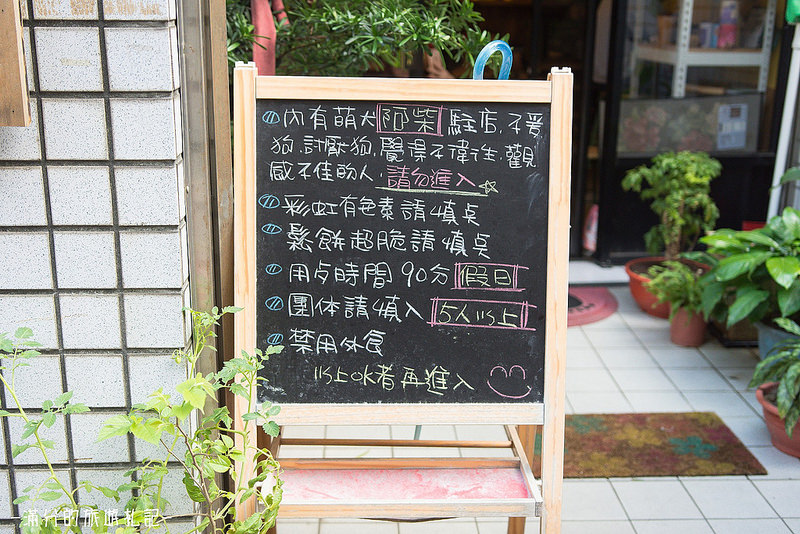 內有萌犬 阿柴 駐店，不愛
狗，討厭狗，覺得不衛生，觀
感不佳的人，請勿進入
彩虹有色素請慎点
鬆餅超脆請慎点
用歺時間 90分 假日
團体請慎入 5人以上
禁用外食
以上OK者再進入
滿分的旅遊札記